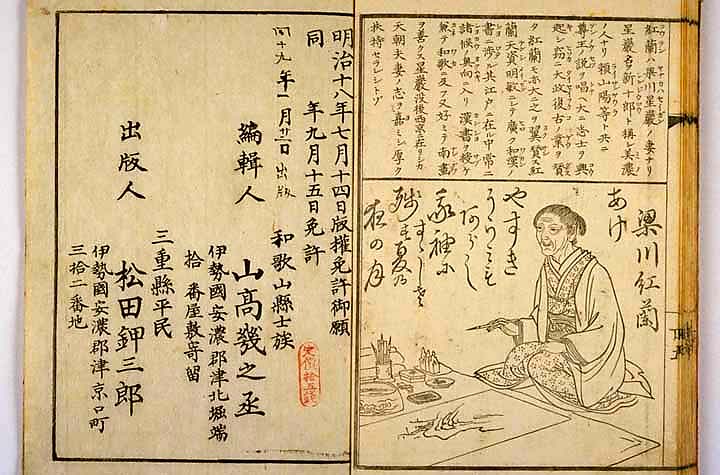 紅蘭ハ梁川星巖ノ妻ナリ
星巖名ハ新十郎ト稱シ美濃
ノ人ナリ頼山陽等ト共ニ
尊王ノ説ヲ唱ヘ大ニ志士ヲ興
起シ窃ニ大政復古ノ業ヲ賛
ク紅蘭モ亦大ニ之ヲ翼賛ス紅
蘭天資明敏ニシテ廣ク和漢ノ
書ニ渉ル共江戸ニ在ル中常ニ
諸候奥向ニ入リ漢書ヲ授ケ
兼テ和歌ニ及フ又好ミテ南畫
ヲ善クス星巖没後西京ニ在リシカ
天朝夫妻ノ志ヲ嘉ミシ厚ク
扶持セラレシトゾ
梁川紅蘭
あけ
やすき
うらみも
の月
明治十八年七月十四日版權免許御願
同年九月十五日免許
同十九年一月廿二日出版
和歌山縣士族
編輯人 山高幾之丞
伊勢國安濃郡津北堀端
拾番屋敷寄留
三重縣平民
出版人 松田鉀三郎
伊勢國安濃郡津京口町
三拾二番地
定價拾五錢